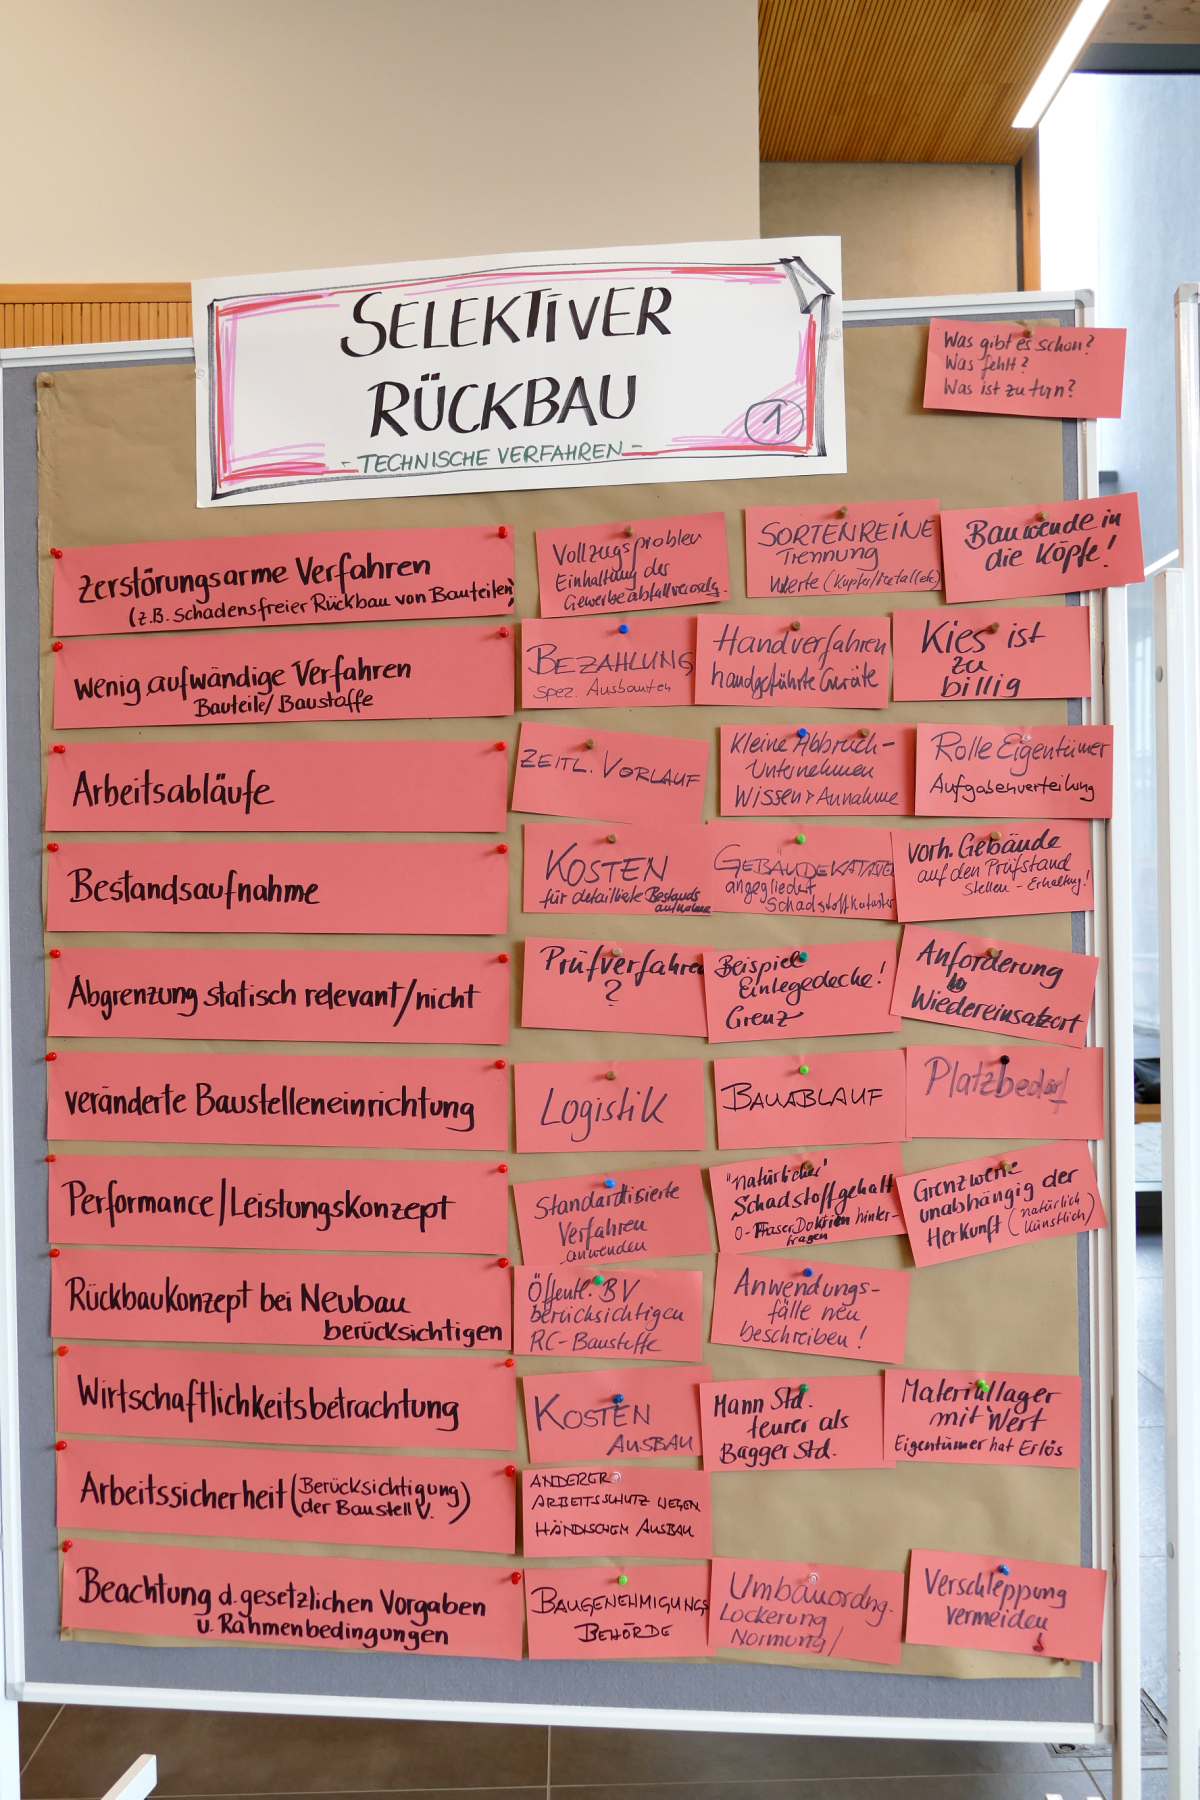 SELEKTIVER
RÜCKBAU
- TECHNISCHE VERFAHREN -
1
Was gibt es schon?
Was fehlt?
Was ist zu tun?
Zerstörungsarme Verfahren
(z.B. Schadensfreier Rückbau von Bauteilen)
Vollzugsproblem
Einhaltung der
Gewerbeabfallverordg.
SORTENREINE
Trennung
Werte (Kupfer/Metall etc.)
Bauwende in
die Köpfe!
wenig aufwändige Verfahren
Bauteile/Baustoffe
BEZAHLUNG
Spez. Ausbauten
Handverfahren
handgeführte Geräte
Kies ist
zu
billig
Arbeitsabläufe
ZEITL. VORLAUF
Kleine Abbruch-
Unternehmen
Wissen > Annahme
Rolle Eigentümer
Aufgabenverteilung
Bestandsaufnahme
KOSTEN
für detaillierte Bestands
aufnahme
GEBÄUDEKATASTE
angegliedert
Schadstoffkataster
vorh. Gebäude
auf den Prüfstand
Stellen - Erhaltung!
Abgrenzung statisch relevant/nicht
Prüfverfahren
?
Beispiel
Einlegedecke!
Grenz
Anforderung
Wiedereinsatzort
veränderte Baustelleneinrichtung
Logistik
BAUABLAUF
Platzbedarf
Performance/Leistungskonzept
Standardisierte
Verfahren
anwenden
"natürlicher"
Schadstoffgehalt
0-Faser Doktrien hinter-
fragen
Grenzwerte
unabhängig der
Herkunft (natürlich
künstlich)
Rückbaukonzept bei Neubau
berücksichtigen
Öffentl. BV
berücksichtigen
RC-Baustoffe
Anwendungs-
fälle neu
beschreiben!
Wirtschaftlichkeitsbetrachtung
KOSTEN
AUSBAU
Mann Std.
teurer als
Bagger Std.
Materiallager
mit Wert
Eigentümer hat Erlös
Arbeitssicherheit (Berücksichtigung
der Baustell V.)
ANDERER
ARBEITSSCHUTZ WEGEN
HÄNDISCHEM AUSBAU
Beachtung d. gesetzlichen Vorgaben
u. Rahmenbedingungen
BAUGENEHMIGUNGS
BEHÖRDE
Umbauordng.
Lockerung
Normung/
Verschleppung
vermeiden